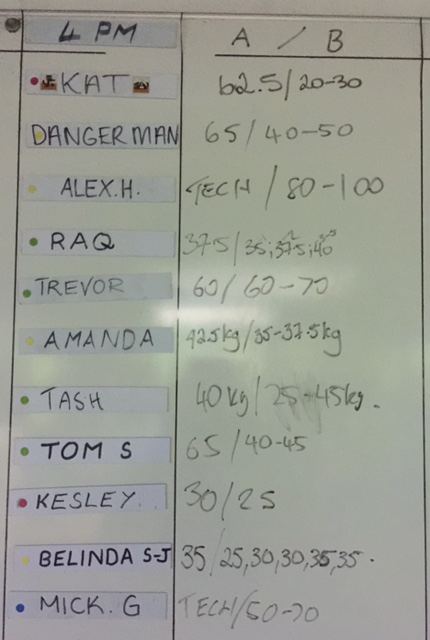 4 PM A / B
KAT 62.5/20-30
DANGERMAN 65/40-50
ALEX.H. TECH/80-100
RAQ 37.5/35;37.5;40
TREVOR 60/60-70
AMANDA 42.5kg/35-37.5kg
TASH 40kg/25-45kg.
TOM S 65/40-45
KESLEY 30/25
BELINDA S-J 35/25,30,30,35,35.
MICK.G TECH/50-70